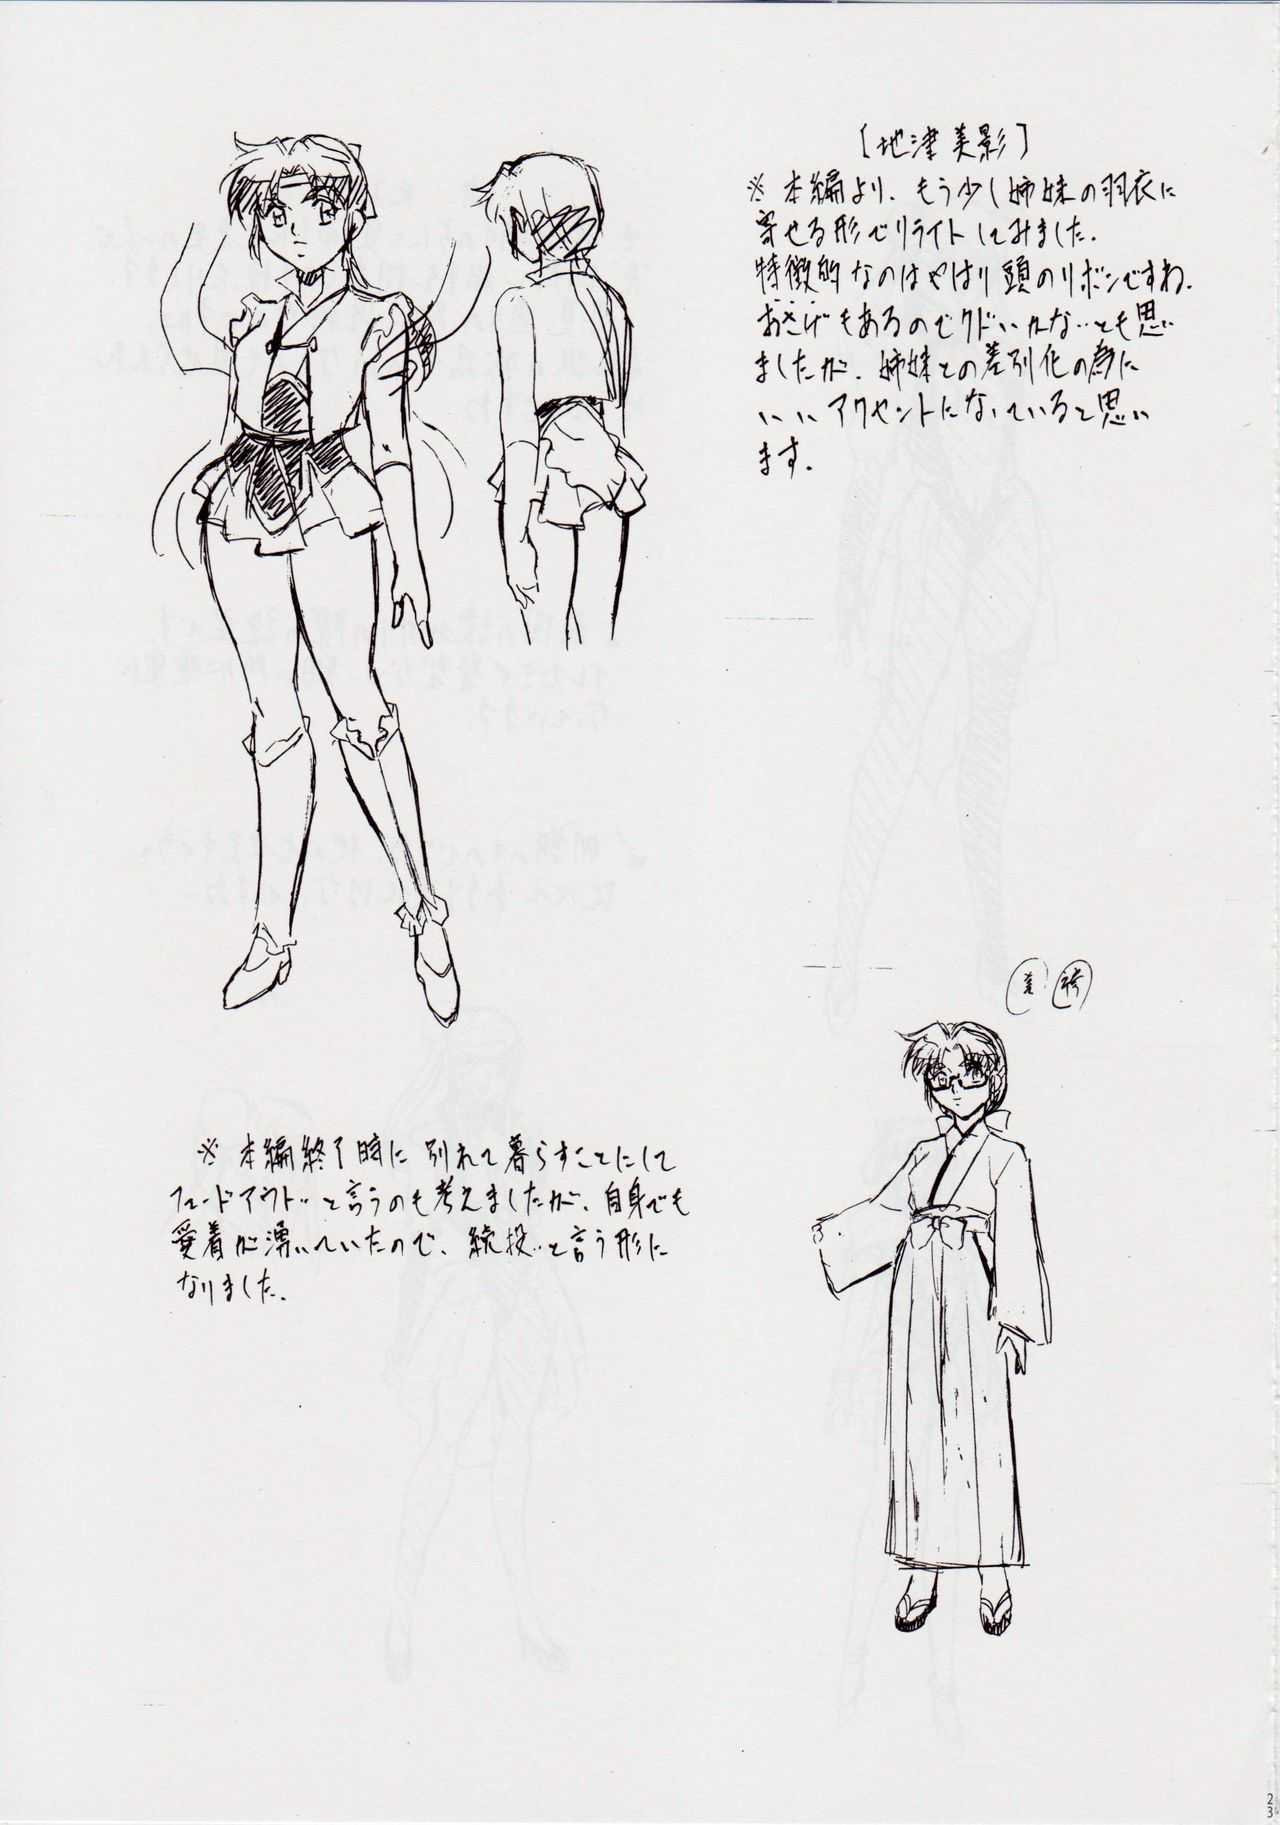 【地津美影】
※本編より、もう少し姉妹の羽衣に
寄せる形でリライトしてみました。
特徴的なのはやはり頭のリボンですね。
おさげもあるのでクドいかな…とも思い
ましたが、姉妹との差別化の為に
いいアクセントになっていると思い
ます。
袴
※本編終了時に別れて暮らすことにして
フェードアウト…と言うのも考えましたが、自身でも
愛着が湧いていたので、続投…と言う形に
なりました。
23